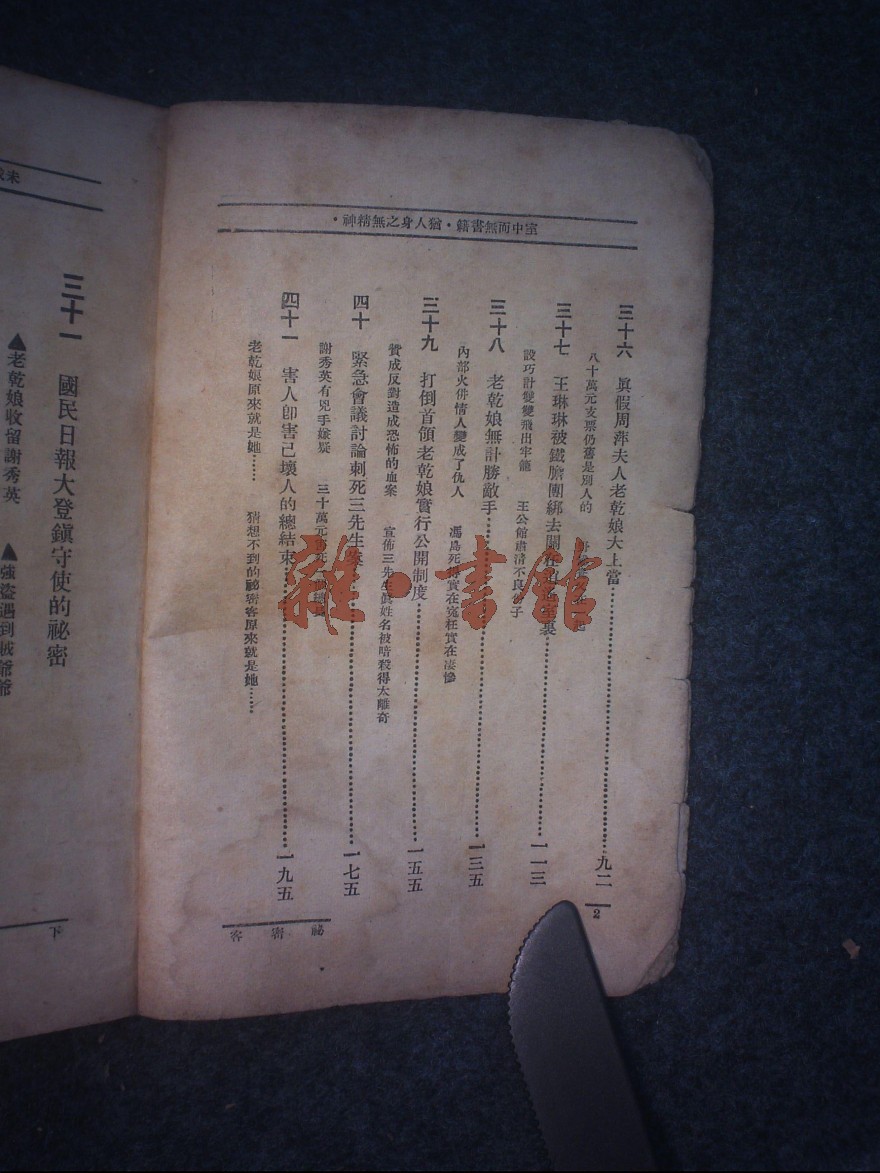 室中而無書籍・猶人身之無精神・
三十六 眞假周萍夫人老乾娘大上當……九二
八十萬元支票仍舊是別人的
三十七 王琳琳被鐵膽團綁去關在 室裏……一一三
設巧計雙雙飛出牢籠 王公館肅清不良 子
三十八 老乾娘無計勝敵手……一三五
內部火併情人變成了仇人 馮島死得實在冤枉實在淒慘
三十九 打倒首領老乾娘實行公開制度……一五五
贊成反對造成恐怖的血案 宣佈三先生眞姓名被暗殺得太離奇
四十 緊急會議討論刺死三先生案……一七五
謝秀英有兇手嫌疑 三十萬元
四十一 害人卽害己壞人的總結束……一九五
老乾娘原來就是她…… 猜想不到的祕密客原來就是她……
2
祕密客
雜・書館
未
三十一 國民日報大登鎭守使的祕密
▲老乾娘收留謝秀英 ▲強盜遇到賊爺爺
下